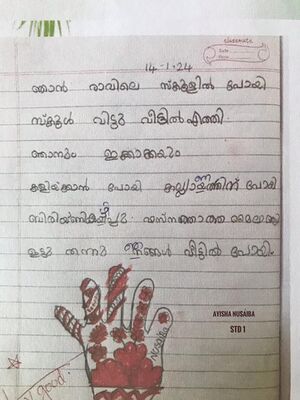 classmate
Date
Page
14-1-24
ഞാൻ രാവിലെ സ്കൂളിൽ പോയി
സ്കൂൾ വിട്ടു വീട്ടിൽ എത്തി
ഞാനും ഇക്കാക്കയും
കളിയ്ക്കാൻ പോയി കല്ല്യാണത്തിന് പോയി
ബിരിയാണി കഴിച്ചു. ഹസ്നത്താത്ത മൈലാഞ്ചി
ഇട്ടു തന്നു ഞങ്ങൾ വീട്ടിൽ പോയി.
AYISHA NUSAIBA
STD 1
Nusaiba
good